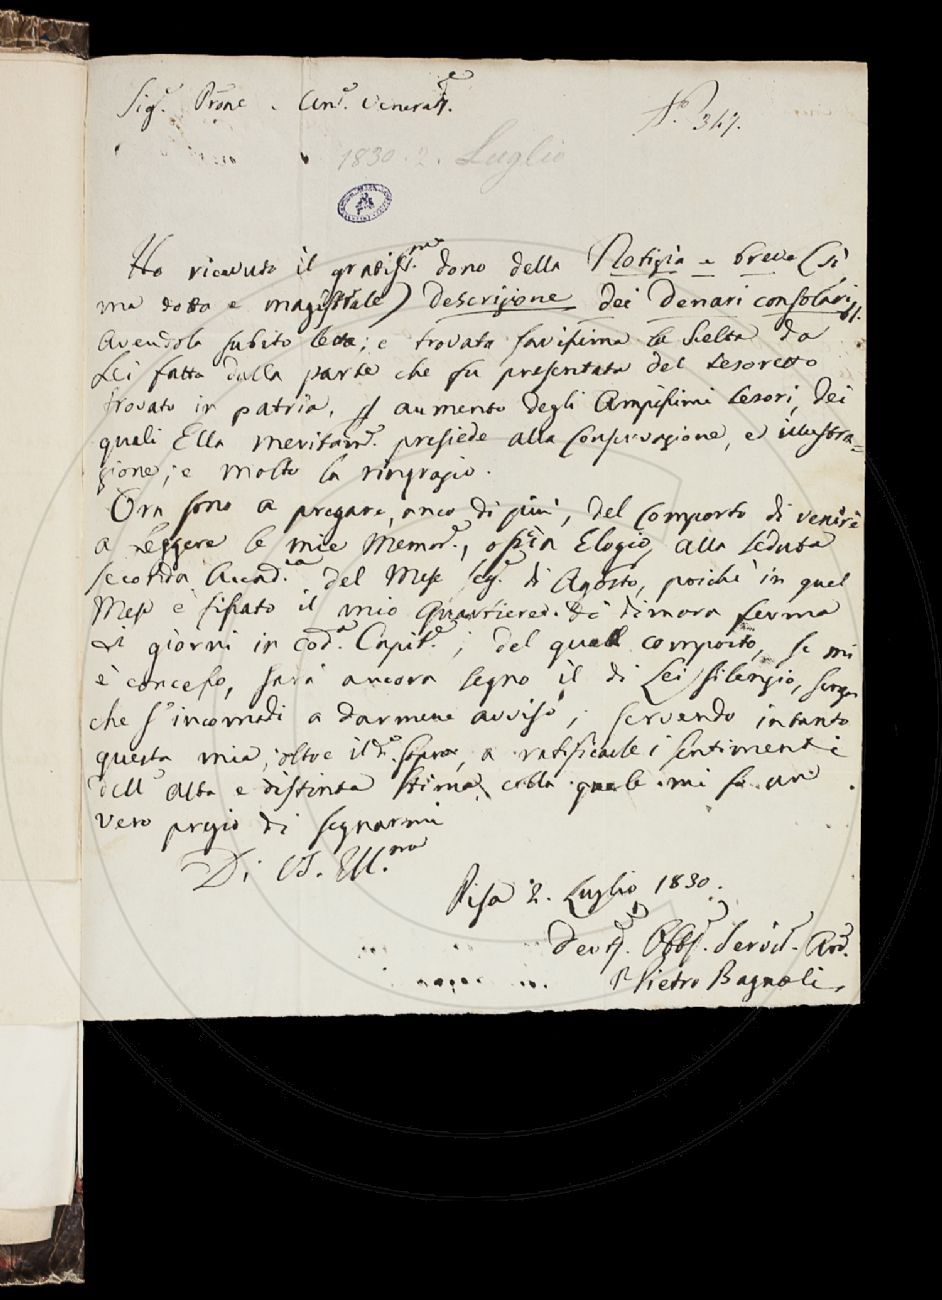 Sig.r Prone e Am.o venerat.e
N.o 347.
1830. 2. Luglio
Ho ricevuto il gratiss.mo dono della Notizia e breve (sì,
ma dotta e magistrale) descrizione dei Denari consolari &.
avendola subito letta; e trovato savissima la scelta da
Lei fatta dalla parte che fu presentata del tesoretto
trovato in patria, p aumento degli Ampissimi tesori, dei
quali Ella meritam.e presiede alla conservazione, e illustra=
zione; e molto la ringrazio.
Ora sono a pregare, anco di più, del comporto di venire
a leggere le mie Memor.e, ossia Elogio, alla seduta
seconda Accad.ca del Mese seg.e di Agosto, poichè in quel
Mese è fissato il mio Quartiere di dimora ferma
di giorni in cod.a Capit.e; del quale comporto, se mi
è concesso, sarà ancora segno il di Lei silenzio, senza
che s'incomodi a darmene avviso; servendo intanto
questa mia, oltre il d.o sopra, a ratificarle i sentimenti
dell'alta e distinta stima, colla quale mi fo un
vero pregio di segnarmi
Di VS. Ill.ma
Pisa 2. Luglio 1830.
Dev.mo Obb.mo Servit.e
Pietro Bagnoli